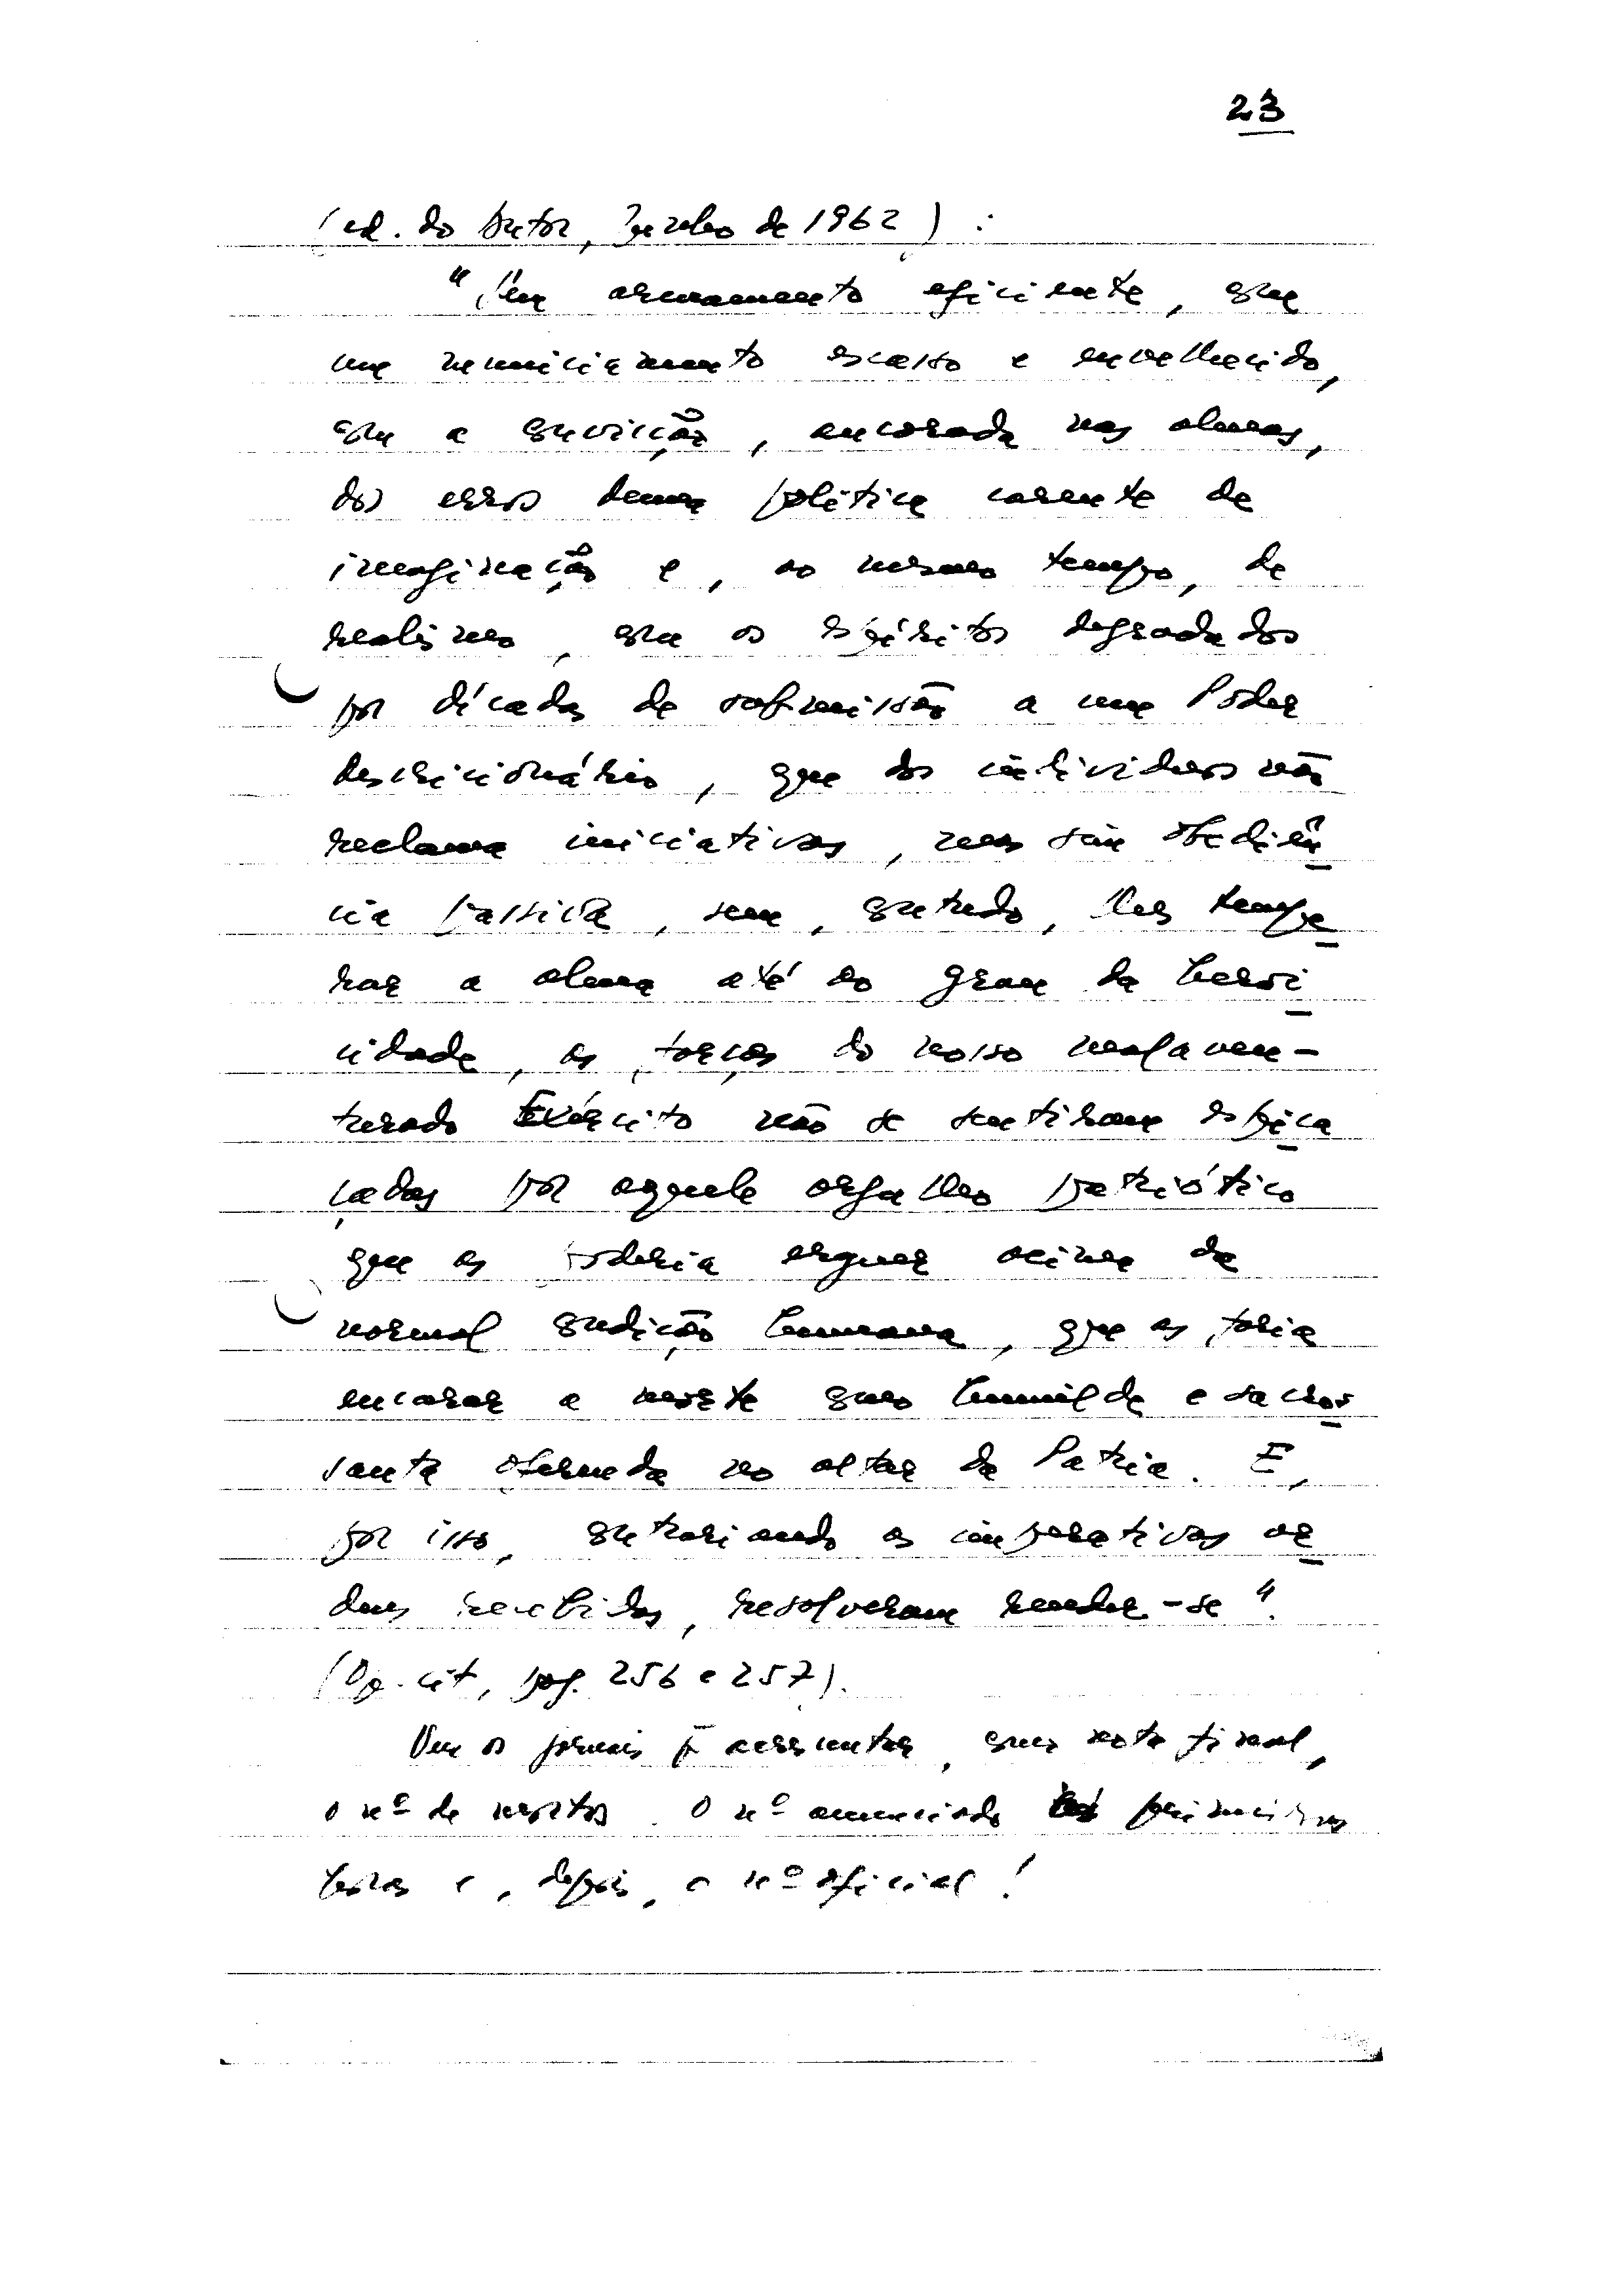 23
(ed. do Autor, Junho de 1962):
"Sem armamento eficiente, com
um municiamento escasso e envelhecido,
com a convicção, ancorada nas almas,
dos erros duma política carente de
imaginação e, ao mesmo tempo, de
realismo, com os espíritos degradados
por décadas de submissão a um Poder
descricionário, que dos indivíduos não
reclama iniciativas, mas sim obediên
cia passiva, sem, contudo, lhes tempe
rar a alma até ao grau da heroi
cidade, as forças do nosso malaven-
turado Exército não se sentiram espica
çadas por aquele orgulho patriótico
que as poderia erguer acima da
normal condição humana, que as faria
encarar a morte como humilde e sacros
santa oferenda no altar da Patria. E,
por isso, contrariando as imperativas or
dens recebidas, resolveram render-se".
(Op. cit, pag. 256 e 257).
Ver os jornais p. acrescentar, como nota final,
o nº de mortos. O nº anunciado nas primeiras
horas e, depois, o nº oficial!